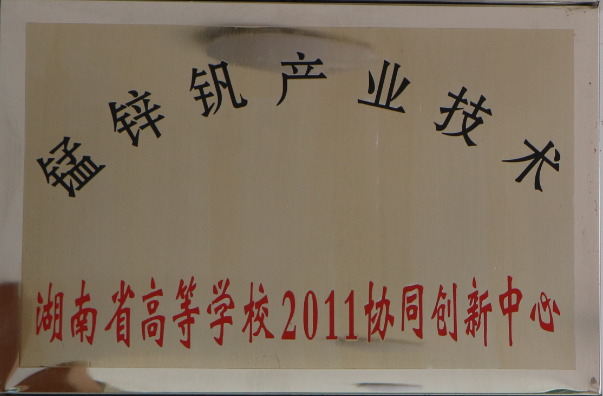 锰锌钒产业技术
湖南省高等学校2011协同创新中心